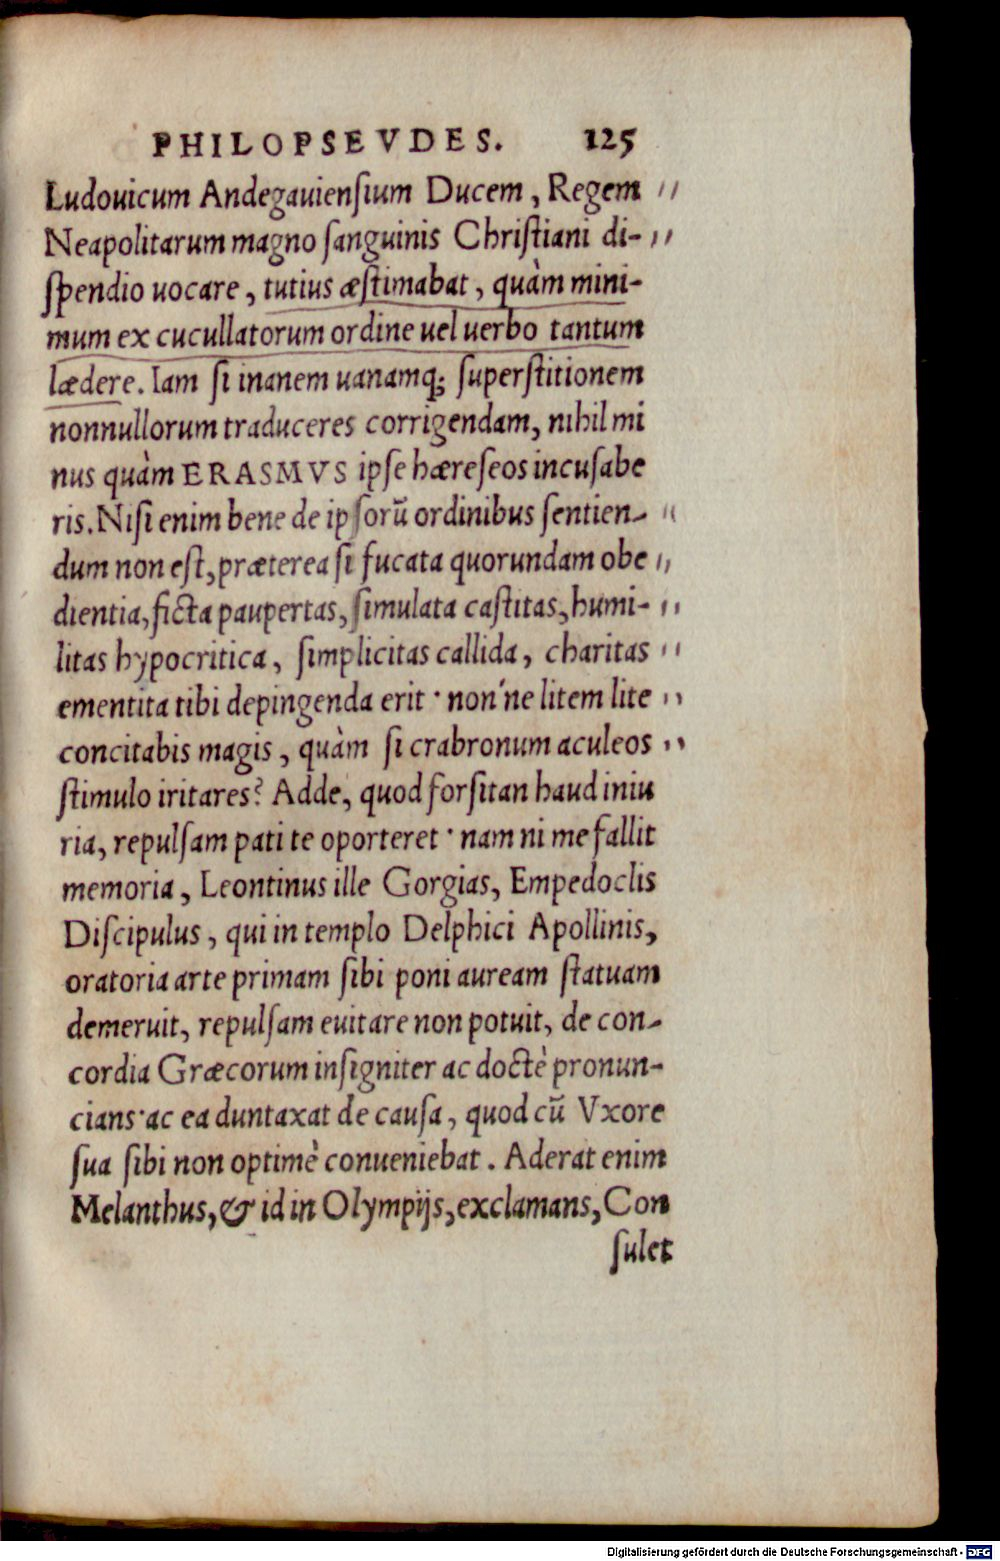 PHILOPSEVDES. 125
Ludouicum Andegauienſium Ducem, Regem
Neapolitarum magno ſanguinis Chriſtiani di-
ſpendio uocare, tutius æſtimabat, quàm mini-
mum ex cucullatorum ordine uel uerbo tantum
lædere. Iam ſi inanem uanamq; ſuperſtitionem
nonnullorum traduceres corrigendam, nihil mi
nus quàm ERASMVS ipſe hæreſeos incuſabe
ris. Niſi enim bene de ipſorū ordinibus ſentien-
dum non eſt, præterea ſi fucata quorundam obe
dientia, ficta paupertas, ſimulata caſtitas, humi-
litas hypocritica, ſimplicitas callida, charitas
ementita tibi depingenda erit· non'ne litem lite
concitabis magis, quàm ſi crabronum aculeos
ſtimulo iritares? Adde, quod forſitan haud iniu
ria, repulſam pati te oporteret· nam ni me fallit
memoria, Leontinus ille Gorgias, Empedoclis
Diſcipulus, qui in templo Delphici Apollinis,
oratoria arte primam ſibi poni auream ſtatuam
demeruit, repulſam euitare non potuit, de con-
cordia Græcorum inſigniter ac doctè pronun-
cians·ac ea duntaxat de cauſa, quod cū Vxore
ſua ſibi non optimè conueniebat. Aderat enim
Melanthus, & id in Olympijs, exclamans, Con
ſulet
Digitalisierung gefördert durch die Deutsche Forschungsgemeinschaft - DFG